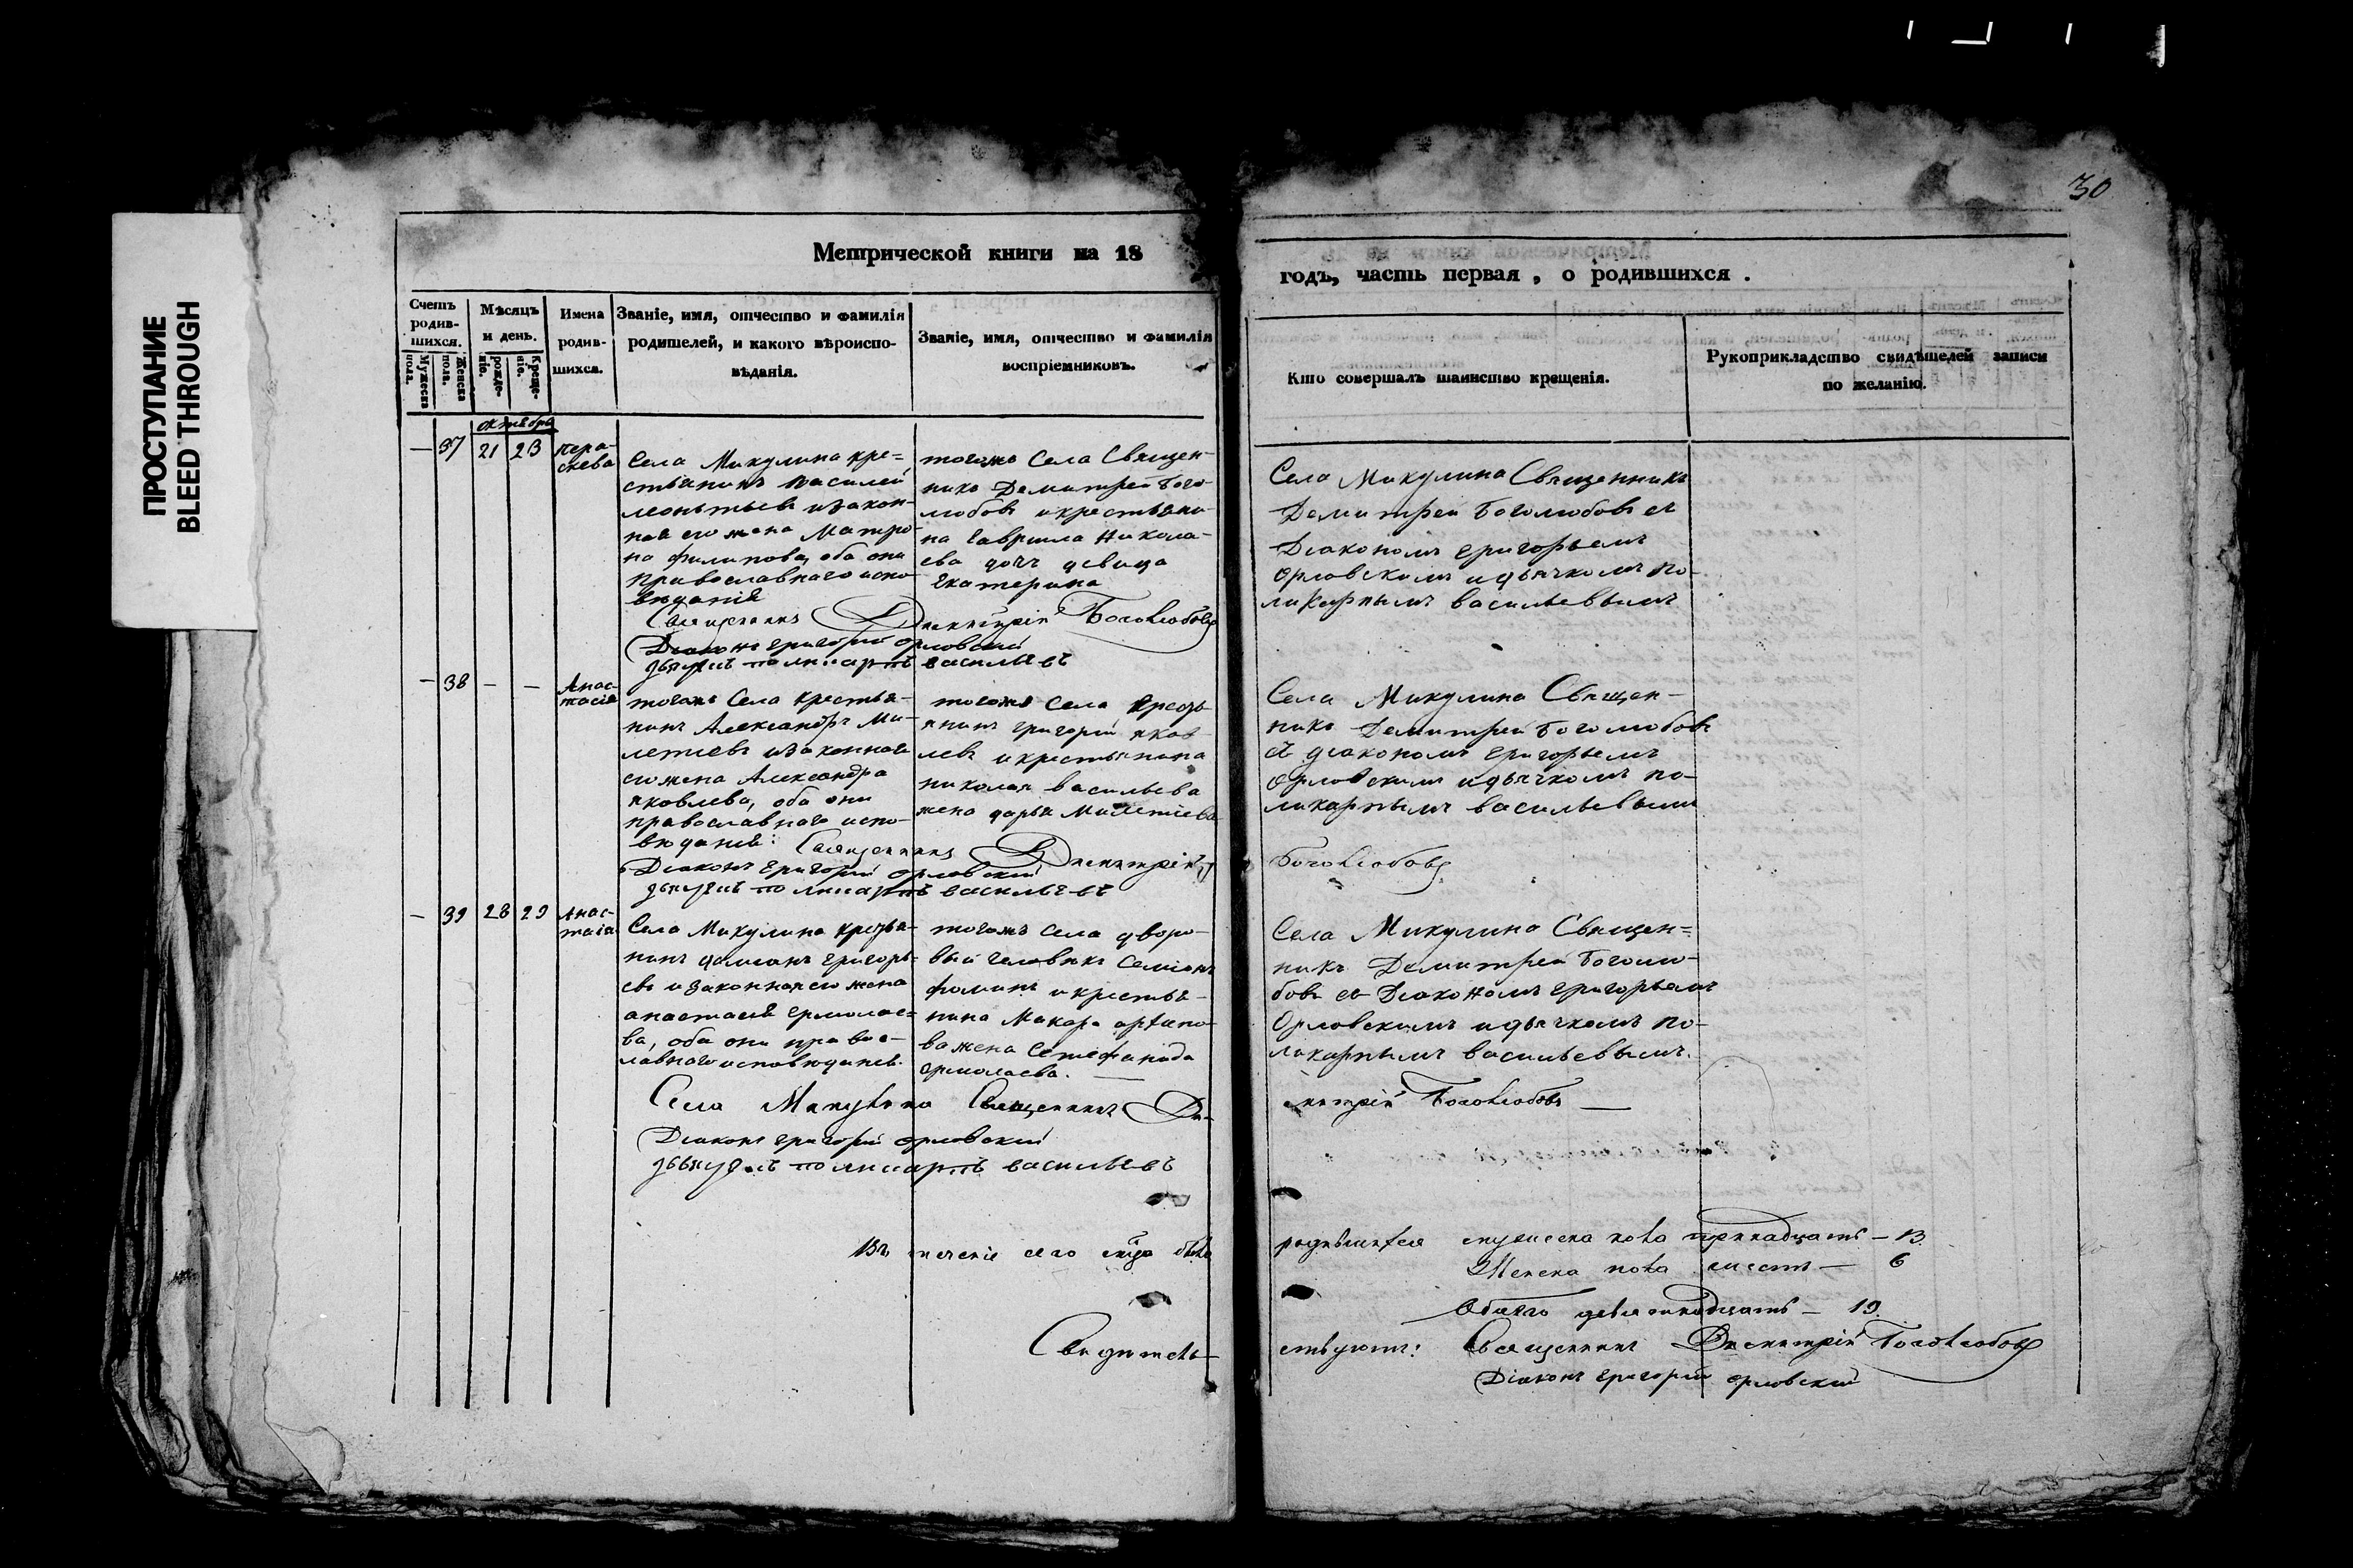 30
ПРОСТУПАНИЕ
BLEED THROUGH
Метрической книги на 18
годъ, часть первая, о родившихся.
Счетъ родив-шихся.
Мужеска пола.
Женска пола.
Мѣсяцъ и день.
рожде-ніе.
Креще-ніе.
Имена родив-шихся.
Званіе, имя, отчество и фамилія
родителей, и какого вѣроиспо-
вѣданія.
Званіе, имя, отчество и фамилія
воспріемниковъ.
Кто совершалъ таинство крещенія.
Рукоприкладство свидѣтелей записи
по желанію.
октября
— 37 21 23
Пера-
скева
Села Микулина кре=
стьянинъ Василей
леонтьевъ и закон-
ная его жена Матро-
на филипова, оба они
православнаго испо-
вѣданія
тогожъ Села Священ-
никъ Демитрей Бого-
любовъ и крестьяни-
на Гавриила Никола-
ева дочь девица
Екатерина
Села Микулина Священникъ
Демитрей Боголюбовъ съ
Діакономъ Григорьемъ
Орловскимъ и дьячкомъ по-
ликарпымъ васильевымъ
Священникъ Димитрій Боголюбовъ
Діаконъ Григорій орловскій
дьячекъ поликарпъ васильевъ
— 38 — —
Анас-
тасія
тогожъ Села крестья-
нинъ Александръ Ми-
летиевъ и законная
его жена Александра
яковлева, оба они
православнаго испо-
вѣданія.
тогожъ Села Кресть-
янинъ Григорій яков-
левъ и крестьянина
николая васильева
жена дарья Милетиева
Села Микулина Священ-
никъ Демитрей Боголюбовъ
съ діакономъ Григорьемъ
Орловскимъ и дьячкомъ по-
ликарпымъ васильевымъ
Священникъ Димитрій
Боголюбовъ
Діаконъ Григорій орловскій
дьячекъ поликарпъ васильевъ
— 39 28 29
Анас-
тасія
Села Микулина крестья-
нинъ дамианъ григорь-
евъ и законная его жена
анастасія ермолае-
ва, оба они право-
славнаго исповѣданія.
тогожъ Села дворо-
вый человѣкъ Семіонъ
фоминъ и крестья-
нина Макара
ва жена
ермолаева.
Села Микулина Священ=
никъ Демитрей Боголю-
бовъ съ Діакономъ Григорьемъ
Орловскимъ и дьячкомъ по-
ликарпымъ васильевымъ.
Села Микулина Священникъ Ди-
митрій Боголюбовъ —
Діаконъ Григорій орловскій
дьячекъ поликарпъ васильевъ
Въ теченіе сего было
родившихся мужеска пола тринадцать — 13.
Женска пола шесть — 6
Обаего девятнадцать — 19.
Свидѣтель-
ствуютъ: Священникъ Димитрій Боголюбовъ
Діаконъ Григорій орловскій